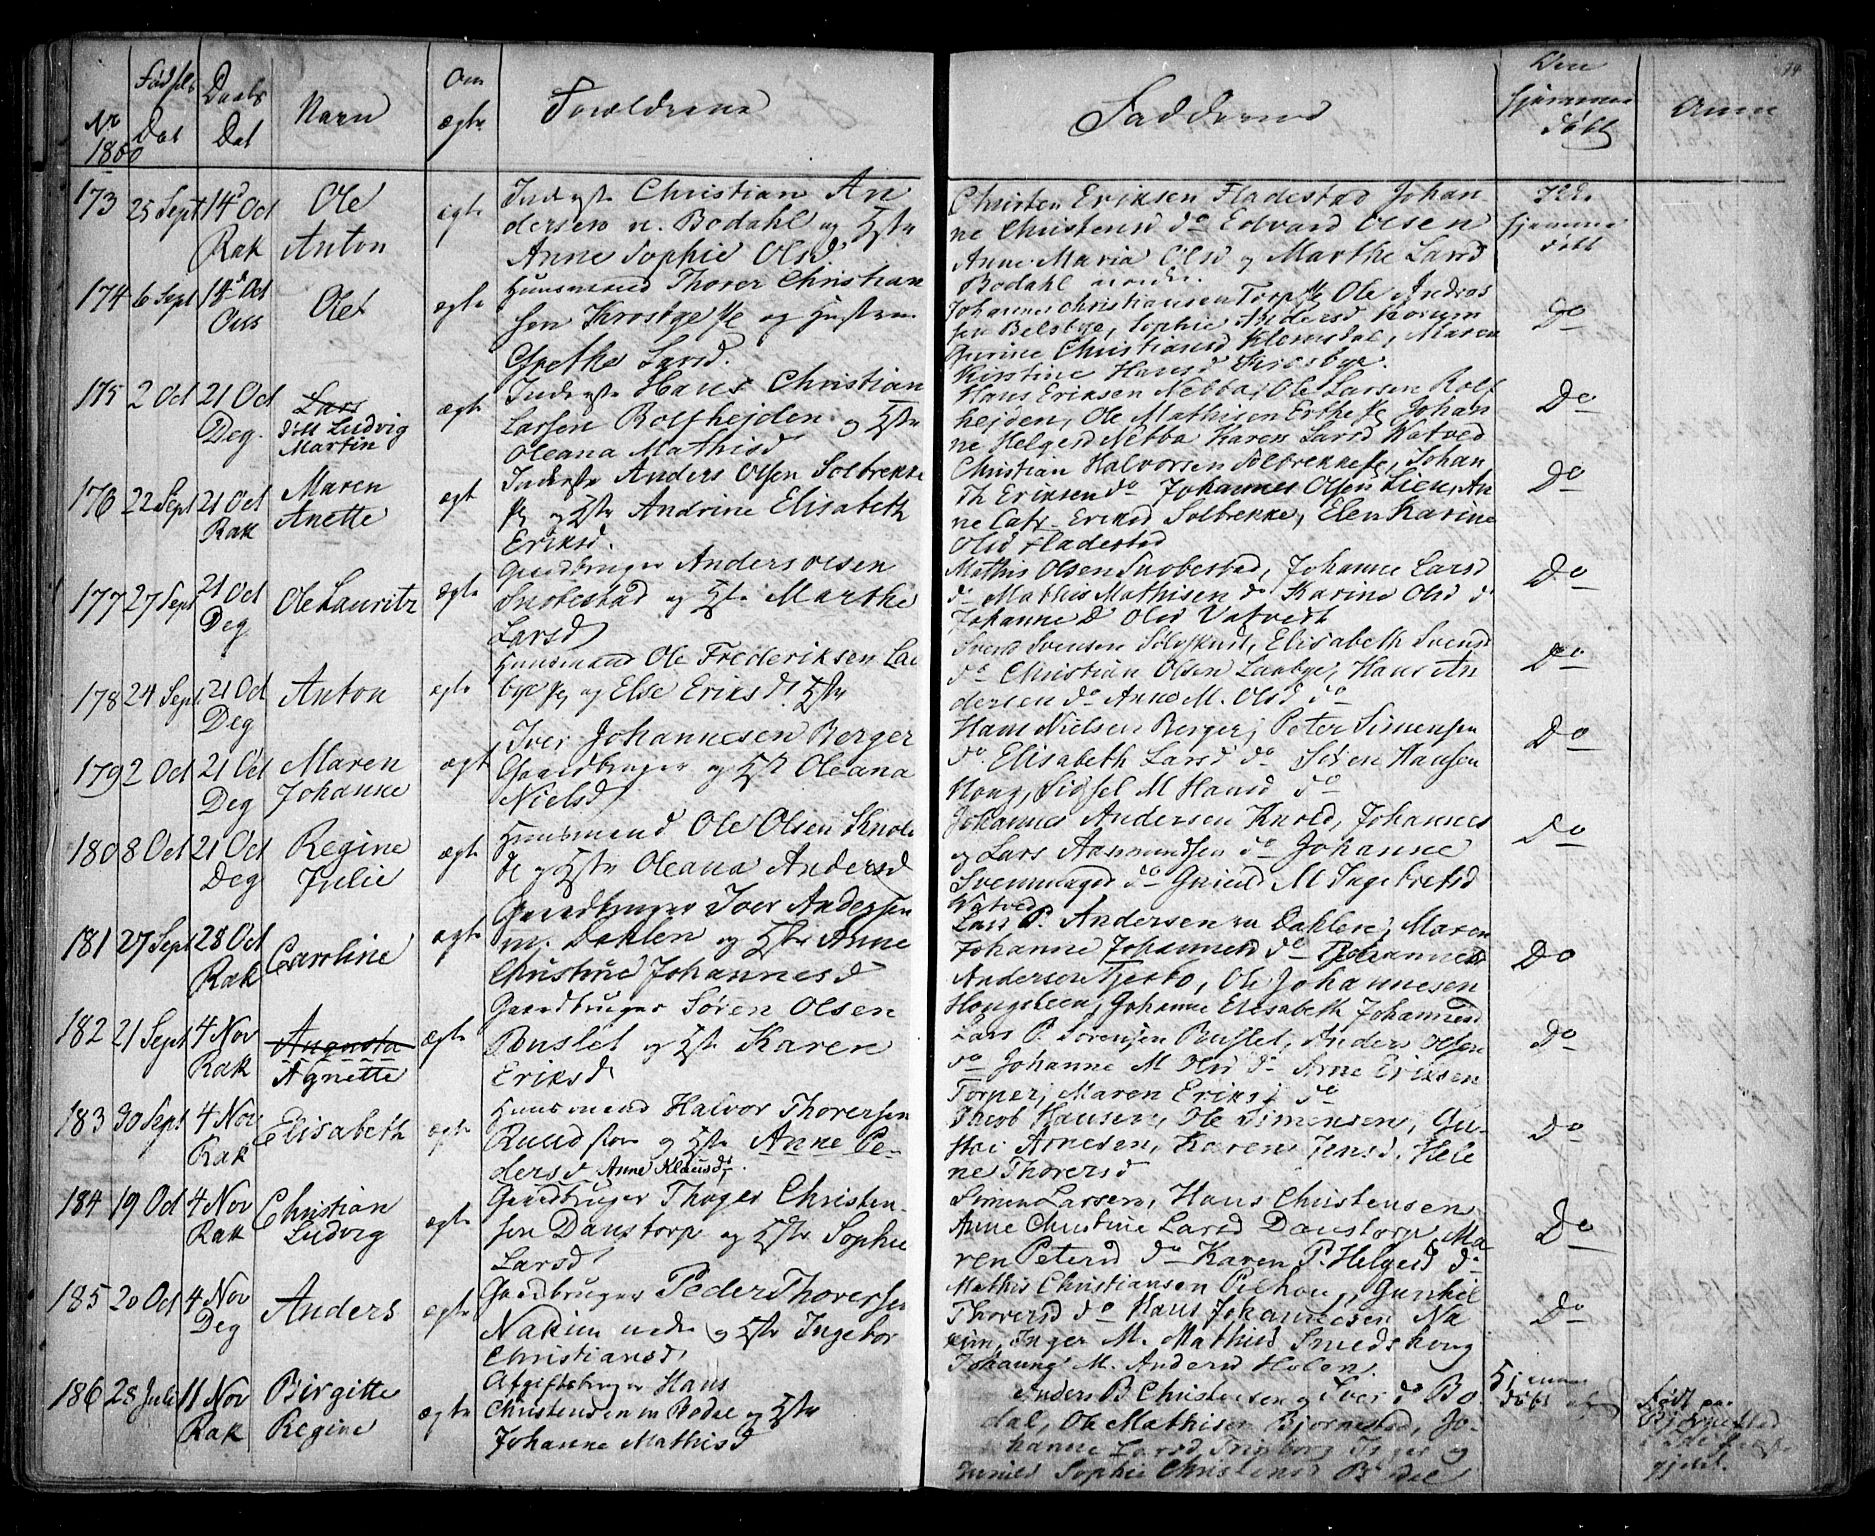 Nr
1860
Fødsels
Dat
Daabs
Dat
Navn
Om
ægte
Forældrene
Fadderne
Om
hjemme
døbt
Anm
74
173 25 Sept 14d Oct
Rak
Ole
Anton
ægte
Inderste Christian An
dersen n. Bodahl og Hstr
Anne Sophie Olsd.
Christen Eriksen Fladestad Johan-
ne Christensd do Edvard Olsen
Anne Maria Olsd og Marthe Larsd
Bodahl nordre.
Ikke
hjemme
døbt
174 6 Sept 14d Oct
Ous
Olet
ægte
Huusmand Thorer Christian
sen Krosbye og Hustru
Grethe Larsd.
Johannes Christiansen Torp Ole Andras
sen Belsbye, Sophie Andersd
Gurine Christiansd Klomsdal, Maren
Kirstine Hansd Krosbye.
Do
175 2 Oct 21 Oct
Deg.
Lars
Ludvig
Martin
ægte
Inderste Hans Christian
Larsen Rolfhejden og Hstr
Oleana Mathisd
Hans Eriksen Nebba, Ole Larsen Rolf
hejden, Ole Mathisen Erthe Johan
ne Helgesd Nebba Karen Larsd Watved
Do
176 22 Sept 21 Oct
Rak
Maren
Anette
ægte
Inderste Anders Olsen Solbrekke
og Hstr Andrine Elisabeth
Eriksd.
Christian Halvorsen Solbrekke, Johan
Th Eriksen do Johannes Olsen Lien, An
ne Cathr. Eriksd Solbrekke, Elen Karine
Olsd Fladestad
Do
177 27 Sept 21 Oct
Deg
Ole Lauritz
ægte
Gaardbruger Anders Olsen
Snobestad og Hstr Marthe
Larsd
Mathis Olsen Snobestad, Johanne Larsd
do Mathis Mathisen do Karine Olsd do
Johanne D Olsd Vatvedt
Do
178 24 Sept 21 Oct
Deg
Anton
ægte
Huusmand Ole Frederiksen La
bye og Else Eriksd Hstr
Svend Svensen Sølvskudt, Elisabeth Svensd
do Christian Olsen Laabye, Hans An
dersen do Anne M. Olsd do
Do
179 2 Oct 21 Oct
Deg
Maren
Johanne
ægt
Iver Johannesen Berger
Gaardbruger og Hstr Oleana
Nielsd
Hans Nielsen Berger, Peter Simensen
do Elisabeth Larsd do Søren Hansen
Houg, Sidsel M Hansd do
Do
180 8 Oct 21 Oct
Deg
Regine
Julie
ægte
Huusmand Ole Olsen Knold
og Hstr Oleana Andersd
Johannes Andersen Knold, Johannes
og Lars Aasmundsen do Johanne
Svenningsd do M Ingebretsd
Watved
Do
181 27 Sept 28 Oct
Rak
Caroline
ægte
Gaardbruger Iver Andersen
m. Dahlen og Hstr Anne
Christine Johannesd
Lars P. Andersen m Dahlen, Maren
Johanne Johannesd do Johannes
Andersen, Ole Johannesen
Hougsteen, Johanne Elisabeth Johannesd
Do
182 21 Sept 4 Nov
Rak
Augusta
Agnette
ægte
Gaardbruger Søren Olsen
Buslet og Hstr Karen
Eriksd
Lars P. Sørensen Buslet, Anders Olsen
do Johanne M Olsd do Arne Eriksen
Torper, Maren Eriksd do
Do
183 30 Sept 4 Nov
Rak
Elisabeth
ægte
Huusmand Halvor Thoversen
Ruud og Hstr Anne Pe-
dersd Anne Klausd.
Jacob Hansen, Ole Simensen, Gu-
Arnesen, Karen Jensd, Hele
ne Thorersd
Do
184 19 Oct 4 Nov
Rak
Christian
Ludvig
ægte
Gaardbruger Thoger Christen-
sen Danstorp og Hstr Sophie
Larsd
Simen Larsen, Hans Christensen
Anne Christine Larsd Danstorp, Ma
ren Petersd do Karen P. Helgesd do
Do
185 20 Oct 4 Nov
Deg
Anders
ægte
Gaardbruger Peder Thorersen
Nakim nedre og Hstr Ingebor
Christiansd
Mathis Christiansen Pilhoug, Gunhil
Thorersd do Hans Johannesen Na
kim, Inger M. Mathisd Smedshoug
Johanne M. Andersd Holen.
Do
186 28 Juli 11 Nov
Rak
Birgitte
Regine
ægte
Afgiftsbruger Hans
Christensen m Bodal og Hstr
Johanne Mathisd
Anders B Christensen og Iver do Bo
dal, Ole Mathisen Bjørnestad, Jo-
hanne Larsd og
Sophie Christensd Bodal
Hjemme
døbt
Født paa
gjeld.